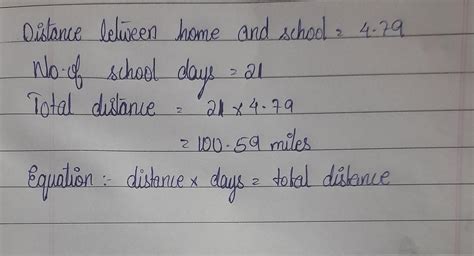 Distance between home and school = 4.79
No. of school days = 21
Total distance = 21 x 4.79
= 100.59 miles
Equation :- distance x days = total distance